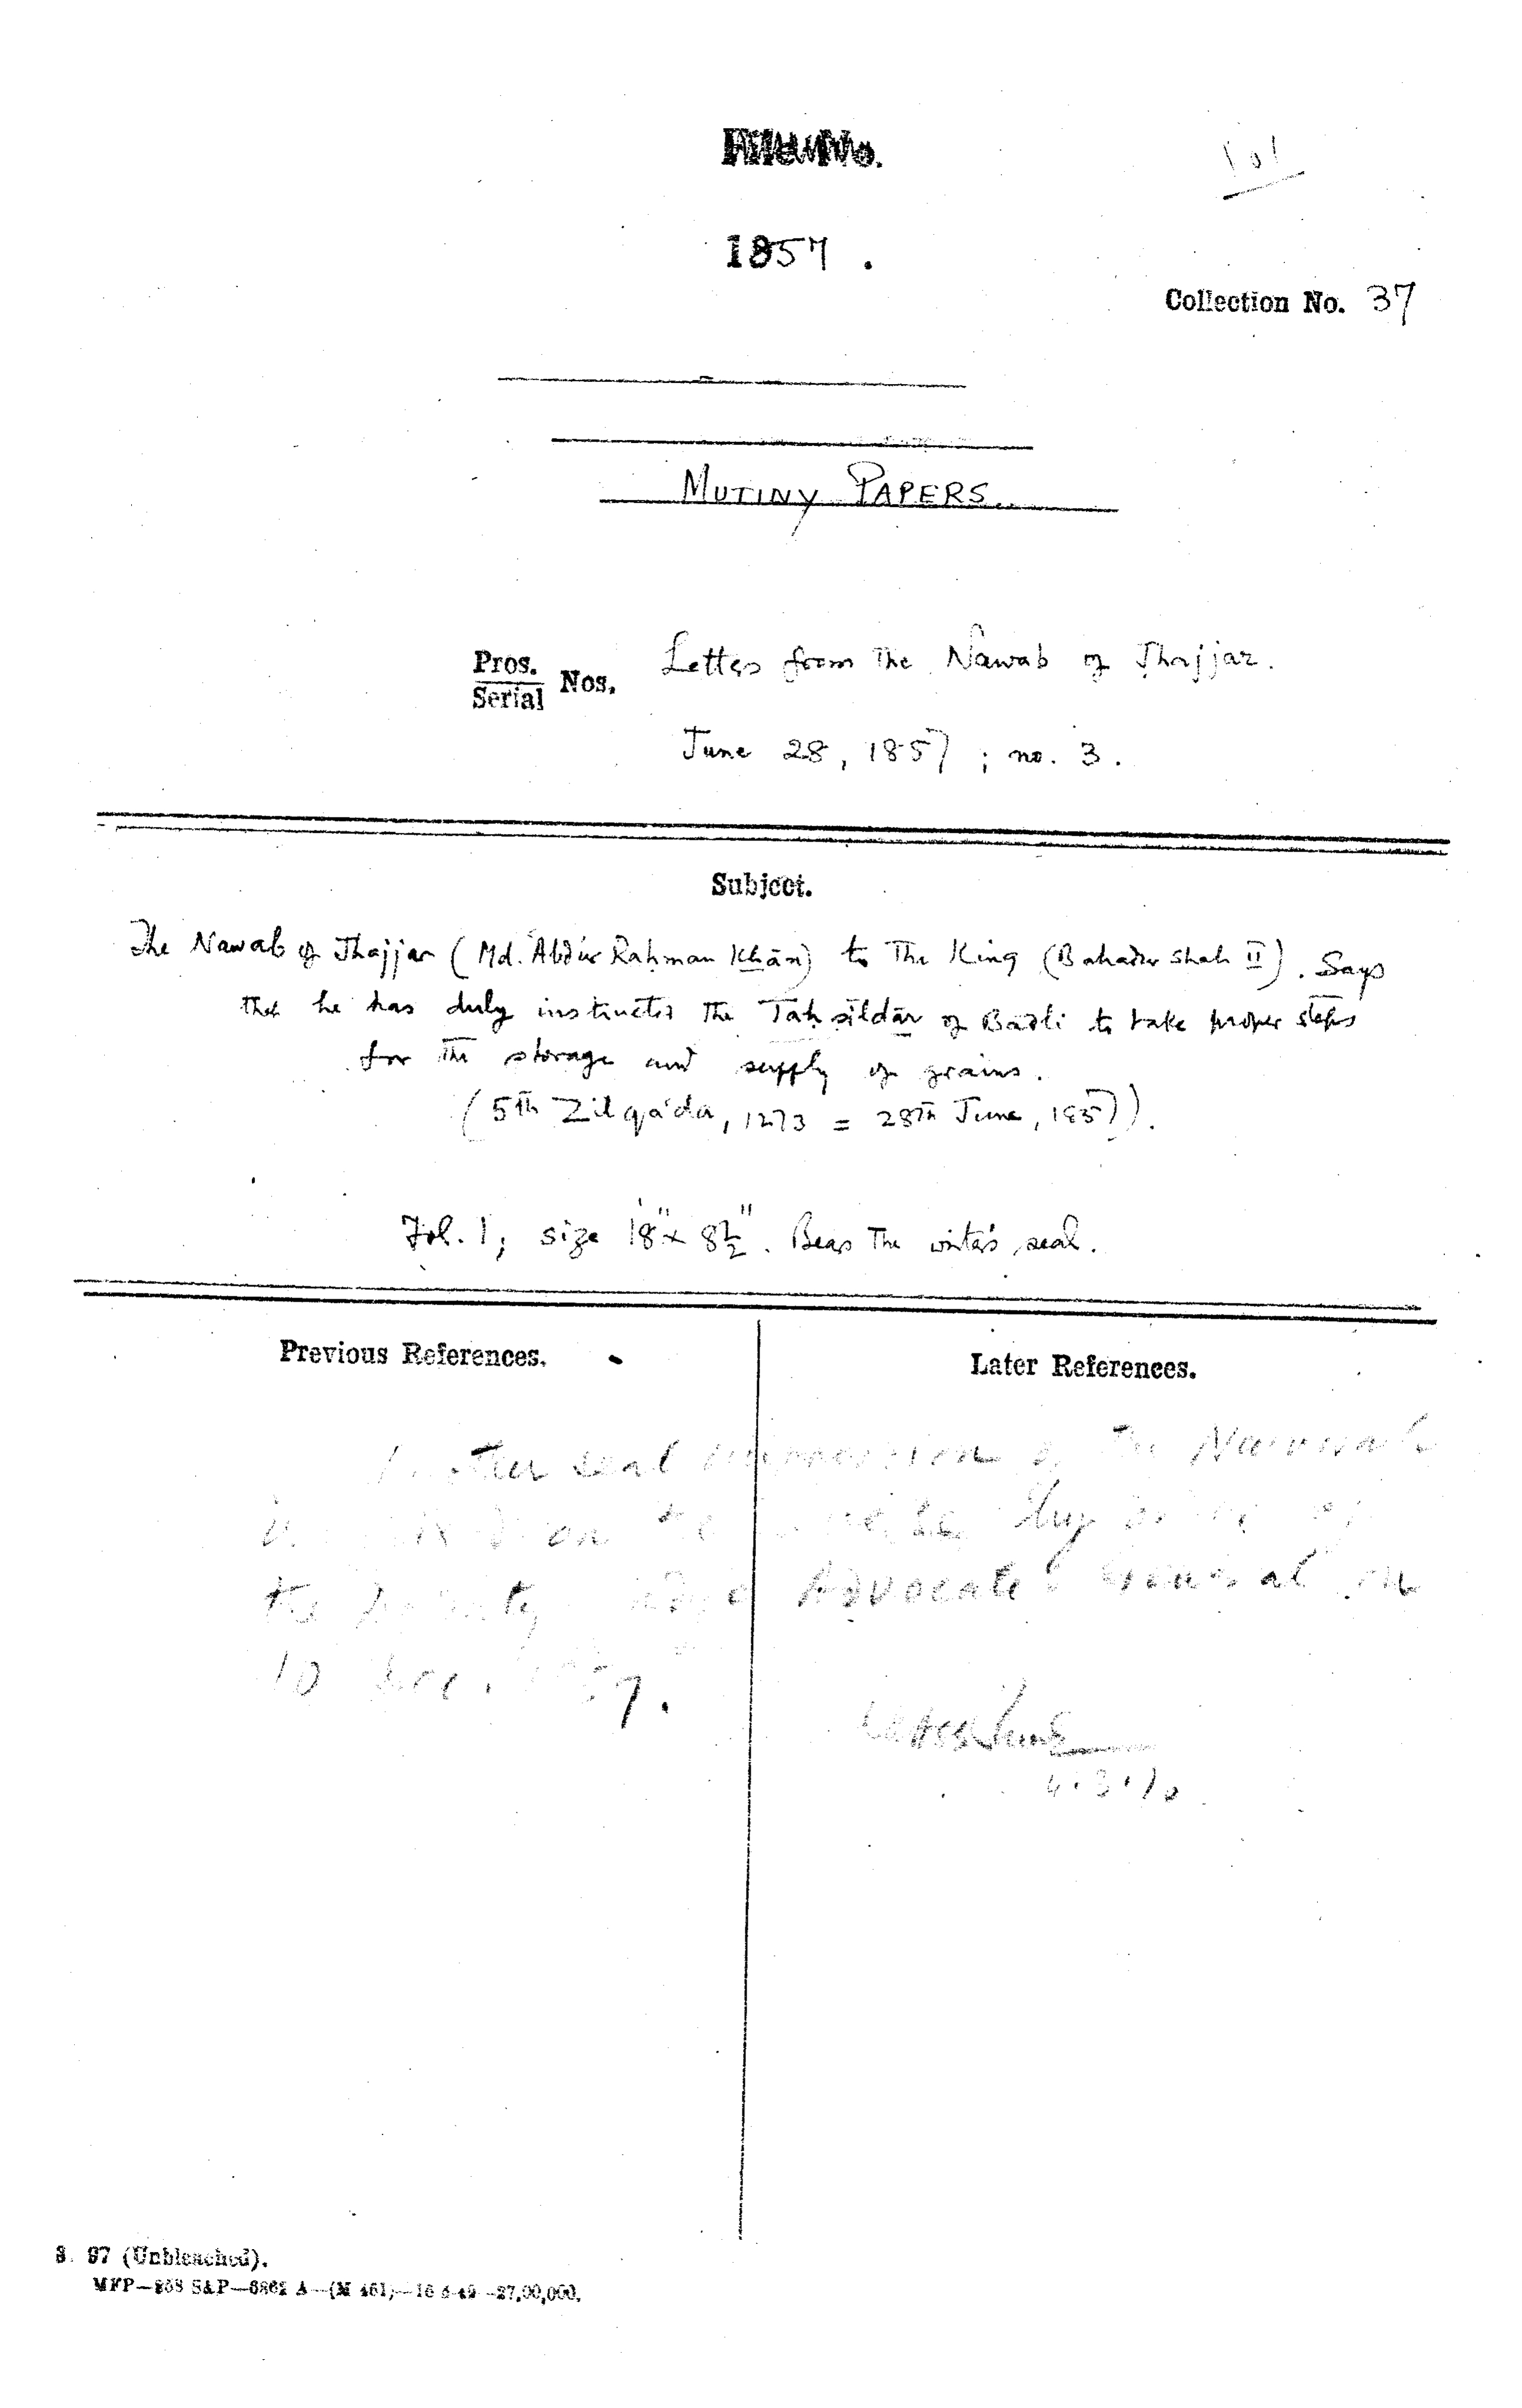 File No.
101
1857.
Collection No. 37
MUTINY PAPERS.
Pros.
Serial Nos. Letters from the Nawab of Jhajjar.
June 28, 1857; no. 3.
Subject.
The Nawab of Jhajjar (Md. 'Abdur Raḥman Khān) to the King (Bahadur Shah II). Says
that he has duly instructed the Taḥsīldār of Badli to take proper steps
for the storage and supply of grains.
(5th Zilqa'da, 1273 = 28th June, 1857).
Fol. 1; size 18" x 8½". Bears the writer's seal.
Previous References.
Later References.
seal impression of the Nawab
on the
to Advocate General on
10
4.3.70
S. 97 (Unbleached).